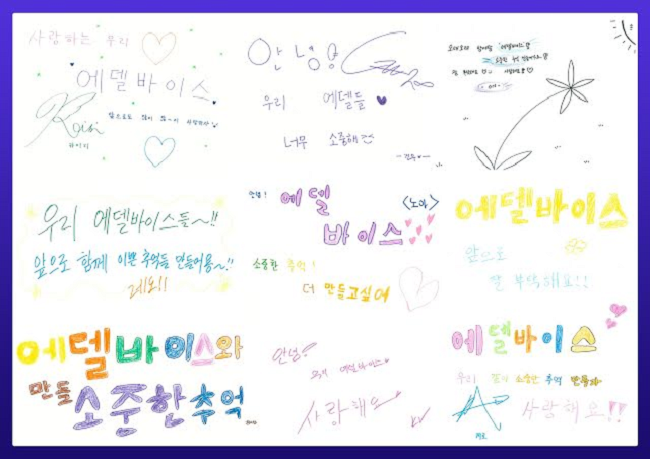 사랑하는 우리
에델바이스
앞으로도 많이 많~이 사랑하자
Rai
라이
안녕
우리 에델들
너무 소중해
오래오래 함께할 '에델바이스'
우리 에델바이스들~!!
앞으로 함께 이쁜 추억들 만들어용~!!
레오!!
안녕!
에델
<노아>
바이스
소중한 추억!
더 만들고싶어
에델바이스
앞으로
잘 부탁해요!!
에델바이스와
만들
소중한 추억
안녕!
우리 에델바이스
사랑해요
에델바이스
우리 소중한 추억 만들자
사랑해요!!